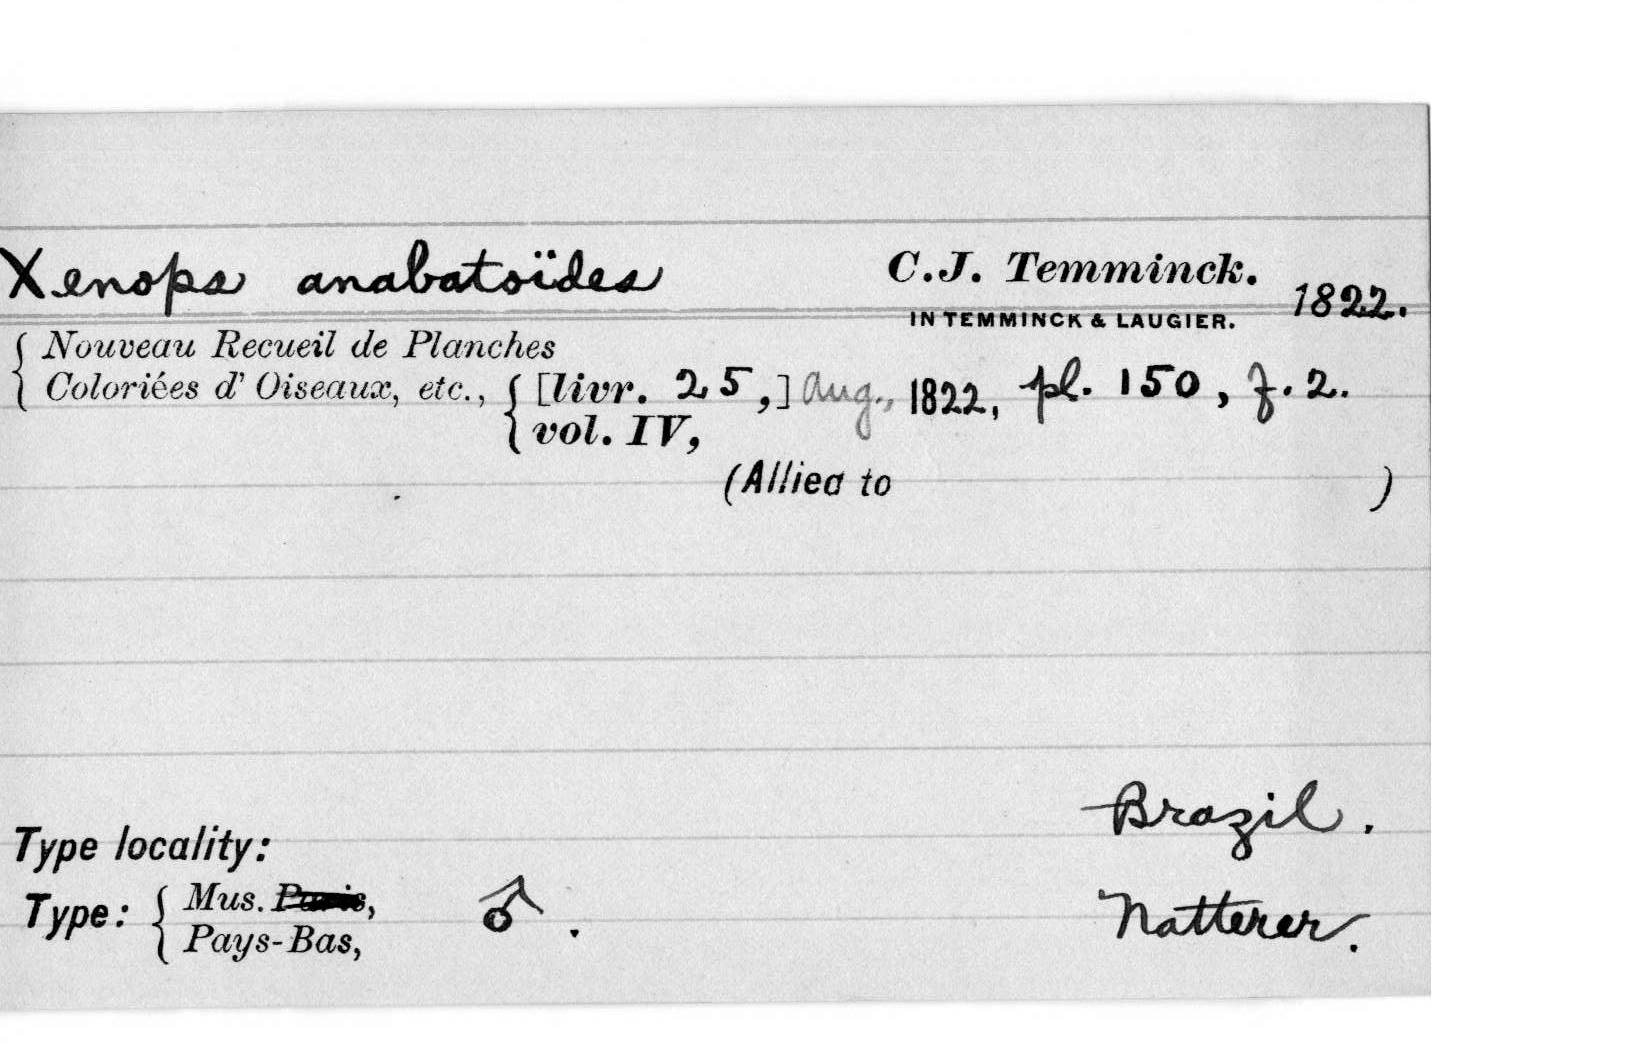 Xenops anabatoïdes C.J. Temminck. 1822.
IN TEMMINCK & LAUGIER.
{ Nouveau Recueil de Planches
Coloriées d' Oiseaux, etc., { [livr. 25,] Aug., 1822, pl. 150, f. 2.
vol. IV,
(Allied to )
Brazil.
Type locality:
Type: { Mus. Paris, ♂. Natterer.
Pays-Bas,